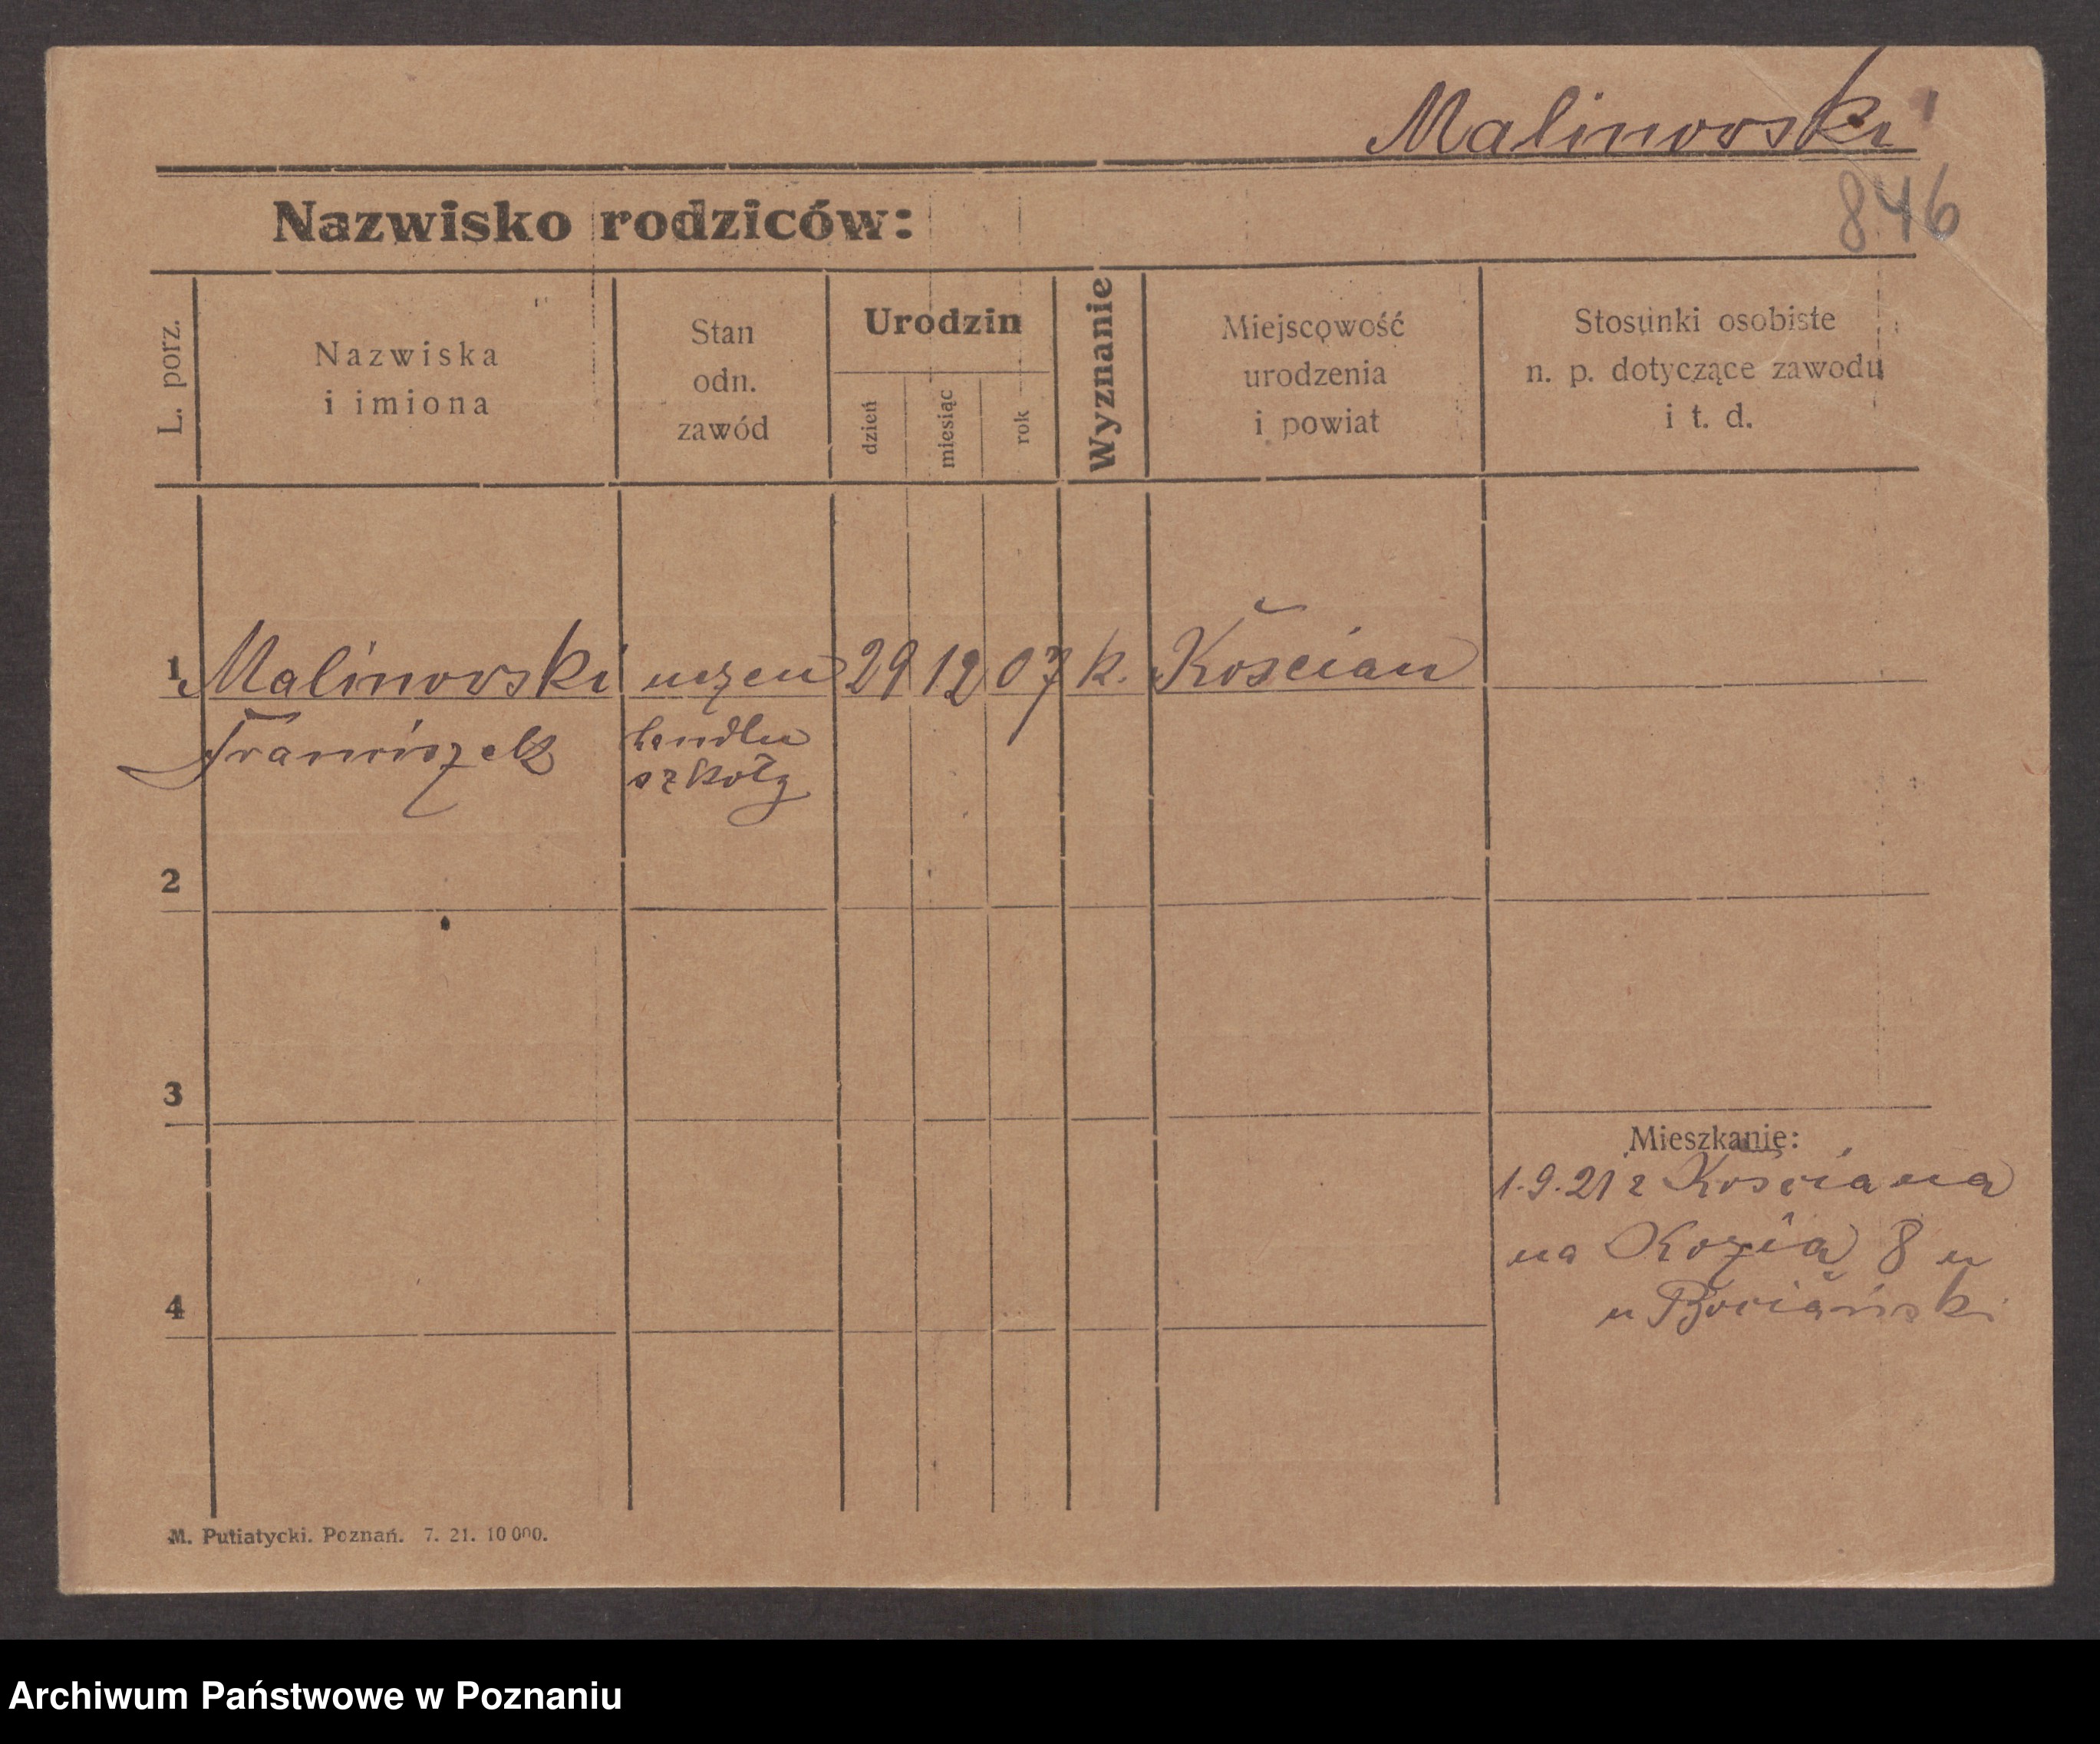 Malinowski
846
Nazwisko rodziców:
L. porz.
Nazwiska
i imiona
Stan
odn.
zawód
Urodzin
dzień
miesiąc
rok
Wyznanie
Miejscowość
urodzenia
i powiat
Stosunki osobiste
n. p. dotyczące zawodu
i t. d.
1 Malinowski uczeń 29 12 07 k. Kościan
Franciszek handlu
szkoły
2
3
Mieszkanie:
1.9.21 z Kościana
na Kozia 8 u
u Bociański
4
M. Putiatycki. Poznań. 7. 21. 10 000.
Archiwum Państwowe w Poznaniu